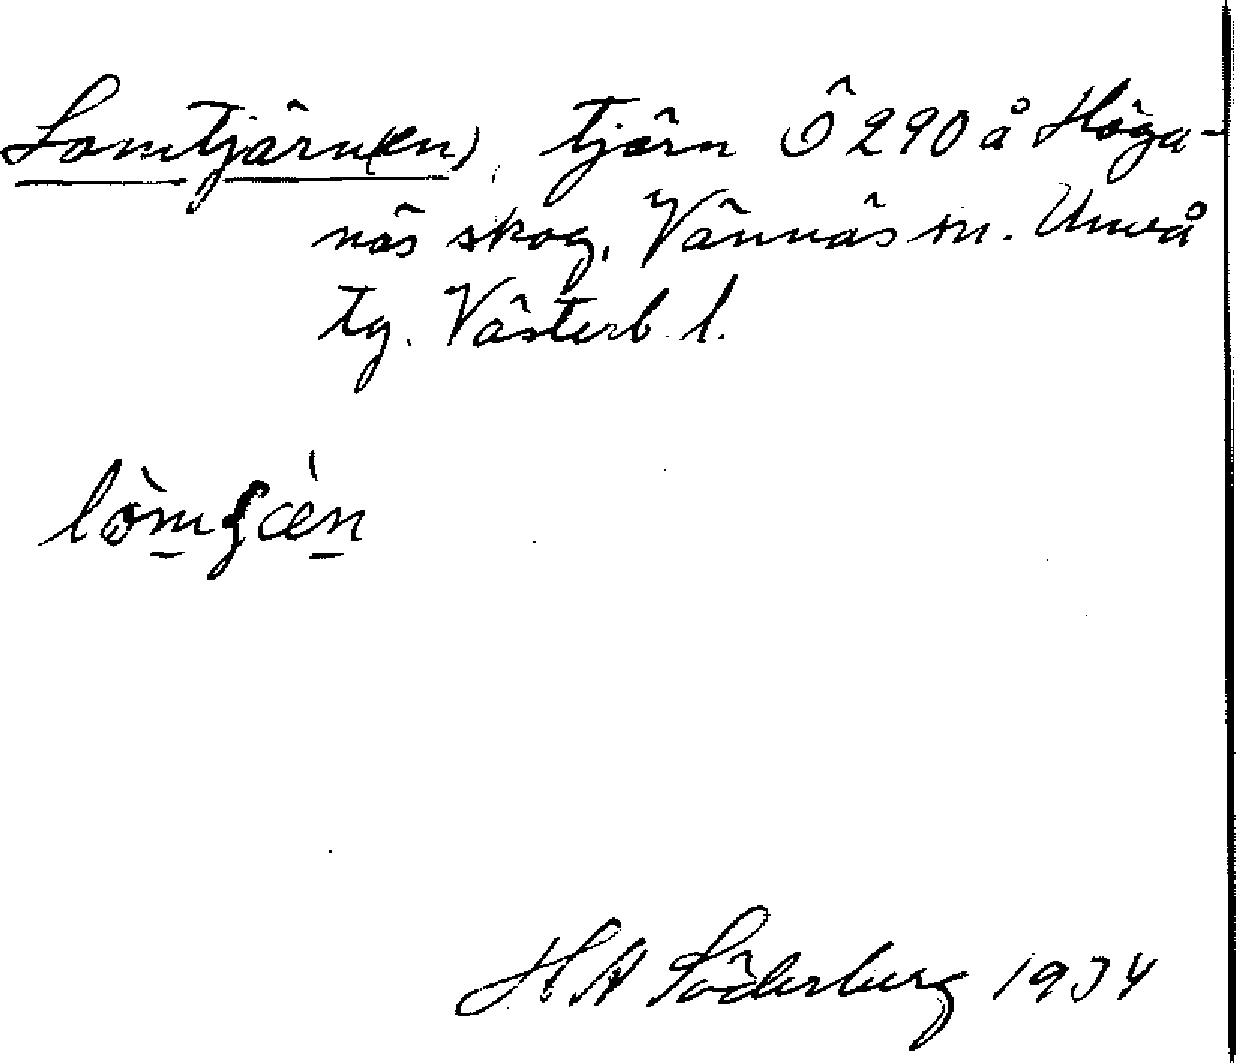 Lomtjärn(en), tjärn Ö 290 å Höga-
näs skog, Vännäs sn. Umeå
tg. Västerb. l.
H A Söderberg 1934